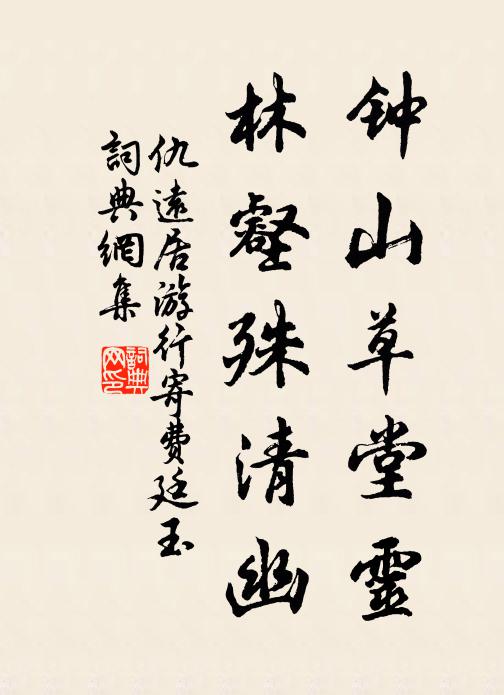 钟山草堂靈
林壑殊清幽
仇遠居游行寄費廷玉
詞典網集
詞典网印